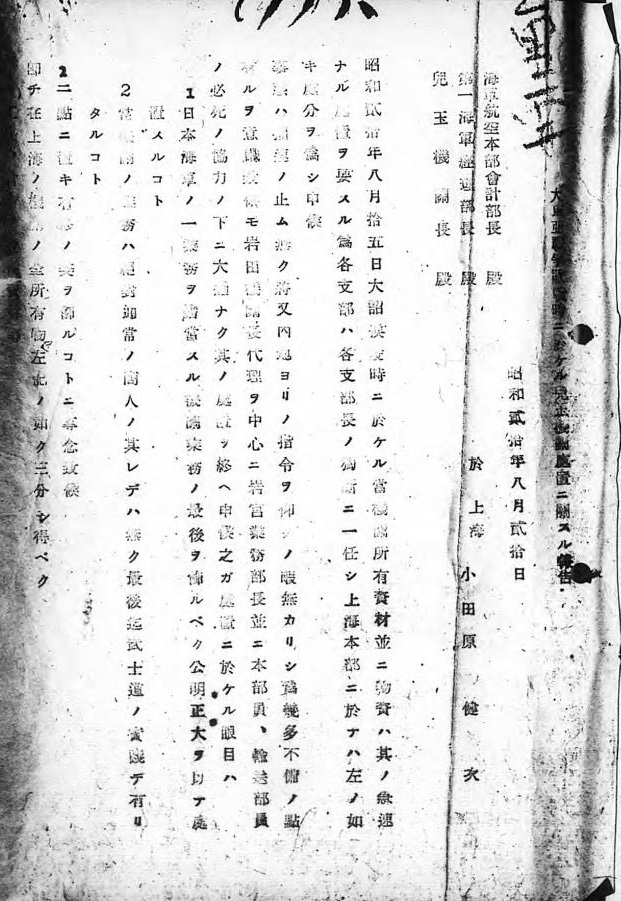 大東亜戰爭 時ニ於ケル兒玉機關處置ニ關スル報告
昭和貳拾年八月貳拾日
於上海 小田原健次
海軍航空本部會計部長 殿
第一海軍經理部長 殿
兒玉機關長 殿
昭和貳拾年八月拾五日大詔渙發時ニ於ケル當機關所有資材並ニ物資ハ其ノ急速
ナル處置ヲ要スル爲各支部ハ各支部長ノ獨斷ニ一任シ上海本部ニ於テハ左ノ如
キ處分ヲ爲シ申候
ノ止ム無ク將又內地ヨリノ指令ヲ仰グノ暇無カリシ爲幾多不備ノ點
ルヲ 候モ岩田機關長代理ヲ中心ニ岩宮業務部長並ニ本部員、輸送部員
ノ必死ノ協力ノ下ニ大過ナク其ノ處置ヲ終ヘ申候之ガ處置ニ於ケル眼目ハ
1日本海軍ノ一業務ヲ擔當スル機關業務ノ最後ヲ飾ルベク公明正大ヲ以テ處
置スルコト
2當機關ノ業務ハ絕對通常ノ商人ノ其レデハ無ク最後迄武士道ノ實踐デ有リ
タルコト
2二點ニ置キ有終ノ美ヲ飾ルコトニ專念致候
卽チ在上海ノ機關ノ全所有物左記ノ如ク三分シ得ベク